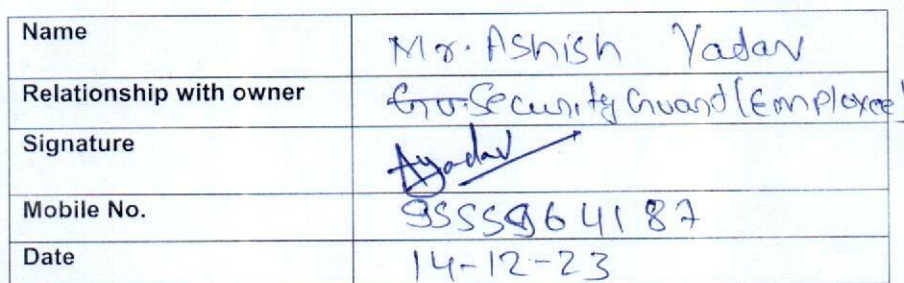 Name Mr. Ashish Yadav
Relationship with owner Security Guard (Employee)
Signature Ayadav
Mobile No. 9555964187
Date 14-12-23